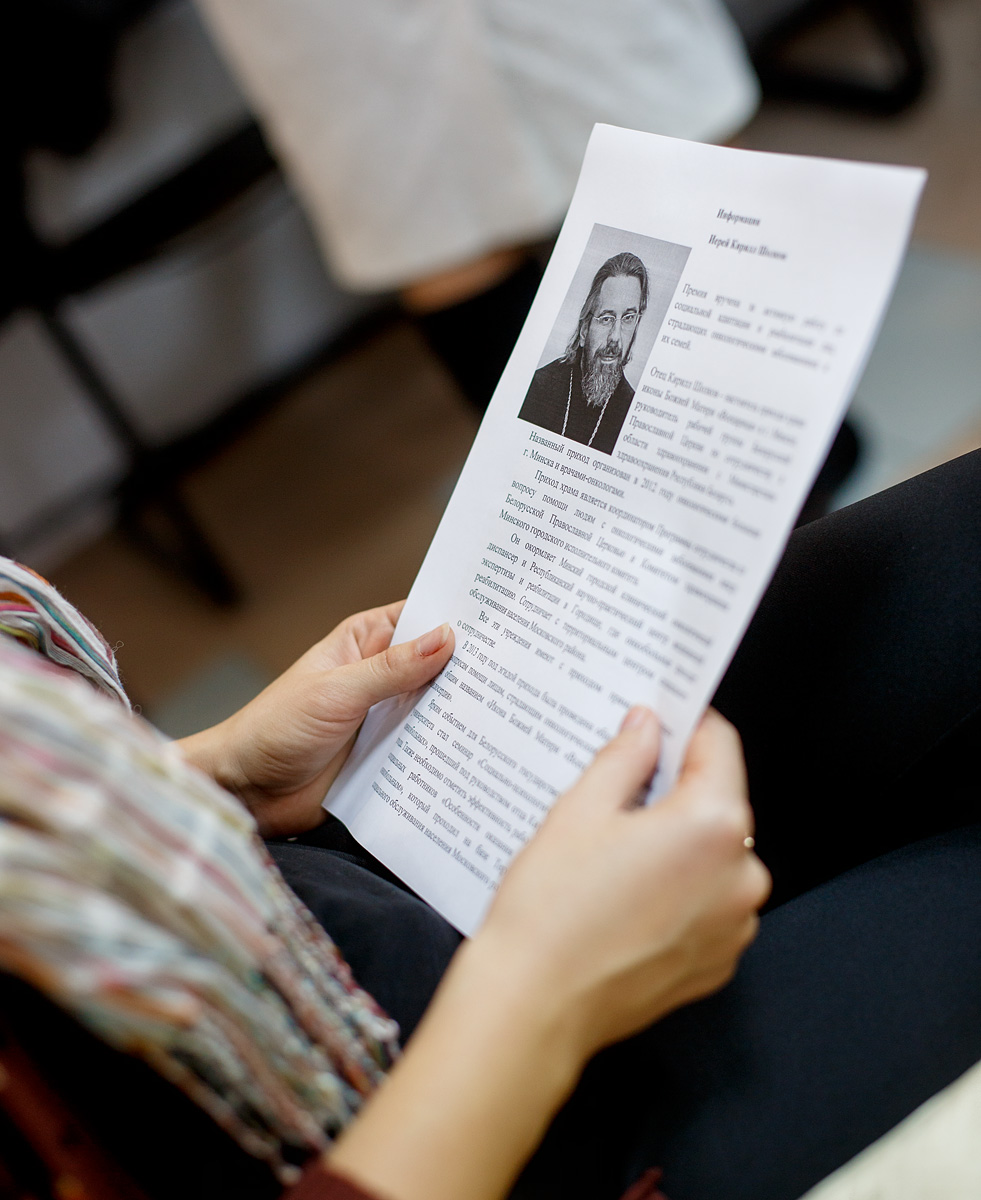 Информация
Иерей Кирилл Шолков
Премия вручена за активную работу по
социальной адаптации и реабилитации
страдающих онкологическими заболеваниями и
их семей.
Отец Кирилл Шолков – настоятель прихода храма
иконы Божией Матери «Всецарица» г. Минска,
руководитель рабочей группы Белорусской
Православной Церкви по сотрудничеству в
области здравоохранения с Министерством
здравоохранения Республики Беларусь.
Названный приход организован в 2012 году онкологическими больными
г. Минска и врачами-онкологами.
Приход храма является координатором Программы сотрудничества по
вопросу помощи людям с онкологическими заболеваниями между
Белорусской Православной Церковью и Комитетом здравоохранения
Минского городского исполнительного комитета.
Он окормляет Минский городской клинический онкологический
диспансер и Республиканский научно-практический центр медицинской
экспертизы и реабилитации в Городище, где онкобольные проходят
реабилитацию. Сотрудничает с территориальным центром социального
обслуживания населения Московского района.
Все эти учреждения имеют с приходом
о сотрудничестве.
В 2013 году под эгидой прихода была проведена
вопросам помощи лицам, страдающим онкологическими
общим названием «Икона Божией Матери
Ярким событием для Белорусского государственного
университета стал семинар «Социально-психологическая
прошедший под руководством отца Кирилла
Также необходимо отметить эффективность работы
социальных работников «Особенности оказания
который проходил на базе
социального обслуживания населения Московского